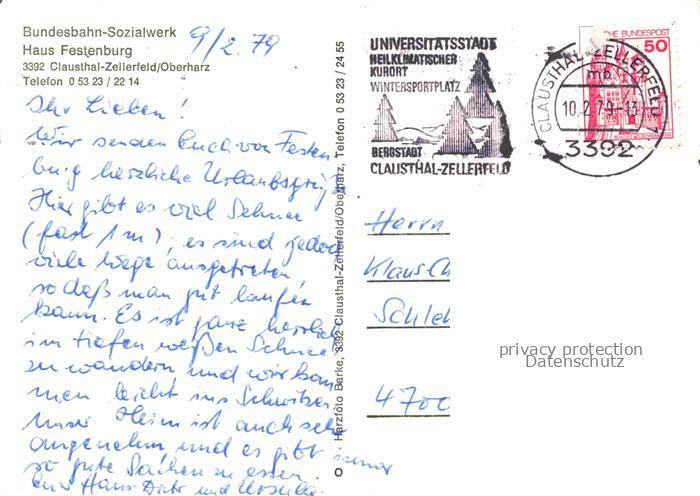 Bundesbahn-Sozialwerk
Haus Festenburg
3392 Clausthal-Zellerfeld/Oberharz
Telefon 0 53 23 / 22 14
9/2. 79
Ihr Lieben!
Wir senden Euch von Festen
burg herzliche Urlaubsgrüße
Hier gibt es viel Schnee
(fast 1 m), es sind jedoch
viele Wege ausgetreten
so daß man gut laufen
kann. Es ist ganz herrlich
im tiefen weißen Schnee
zu wandern und wir kom
men leicht ins Schwitzen
Unser Heim ist auch sehr
angenehm und es gibt immer
so gute Sachen zu essen.
Eure Hans-Dieter und Ursula.
O Harzfoto Barke, 3392 Clausthal-Zellerfeld/Oberharz, Telefon 0 53 23 / 24 55
UNIVERSITÄTSSTADT
HEILKLIMATISCHER
KURORT
WINTERSPORTPLATZ
BERGSTADT
CLAUSTHAL-ZELLERFELD
CLAUSTHAL-ZELLERFELD 1
mb
10.2.79-13
3392
CHE BUNDESPOST
50
Herrn
Klaus Ch
Schle
4700
privacy protection
Datenschutz